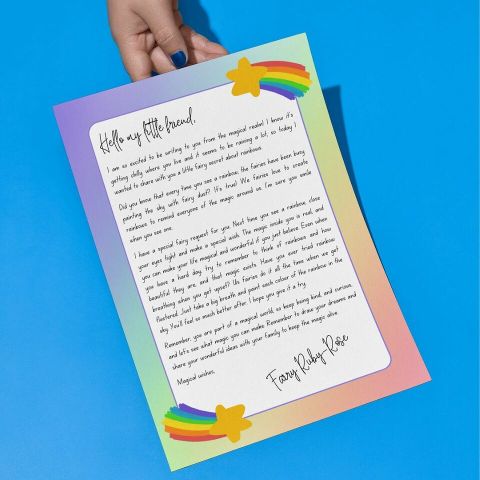 Hello my little friend,
I am so excited to be writing to you from the magical realm! I know it's
getting chilly where you live and it seems to be raining a lot, so today I
wanted to share with you a little fairy secret about rainbows.
Did you know that every time you see a rainbow, the fairies have been busy
painting the sky with fairy dust? It's true! We fairies love to create
rainbows to remind everyone of the magic around us. I'm sure you smile
when you see one.
I have a special fairy request for you. Next time you see a rainbow, close
your eyes tight and make a special wish. The magic inside you is real and
you can make your life magical and wonderful if you just believe. Even when
you have a hard day, try to remember to think of rainbows and how
beautiful they are, and that magic exists. Have you ever tried rainbow
breathing when you get upset? Us fairies do it all the time when we get
flustered. Just take a big breath and paint each colour of the rainbow in the
sky. You'll feel so much better after. I hope you give it a try.
Remember, you are part of a magical world, so keep being kind, and curious,
and let's see what magic you can make. Remember to draw your dreams and
share your wonderful ideas with your family to keep the magic alive.
Magical wishes,
Fairy Ruby Rose